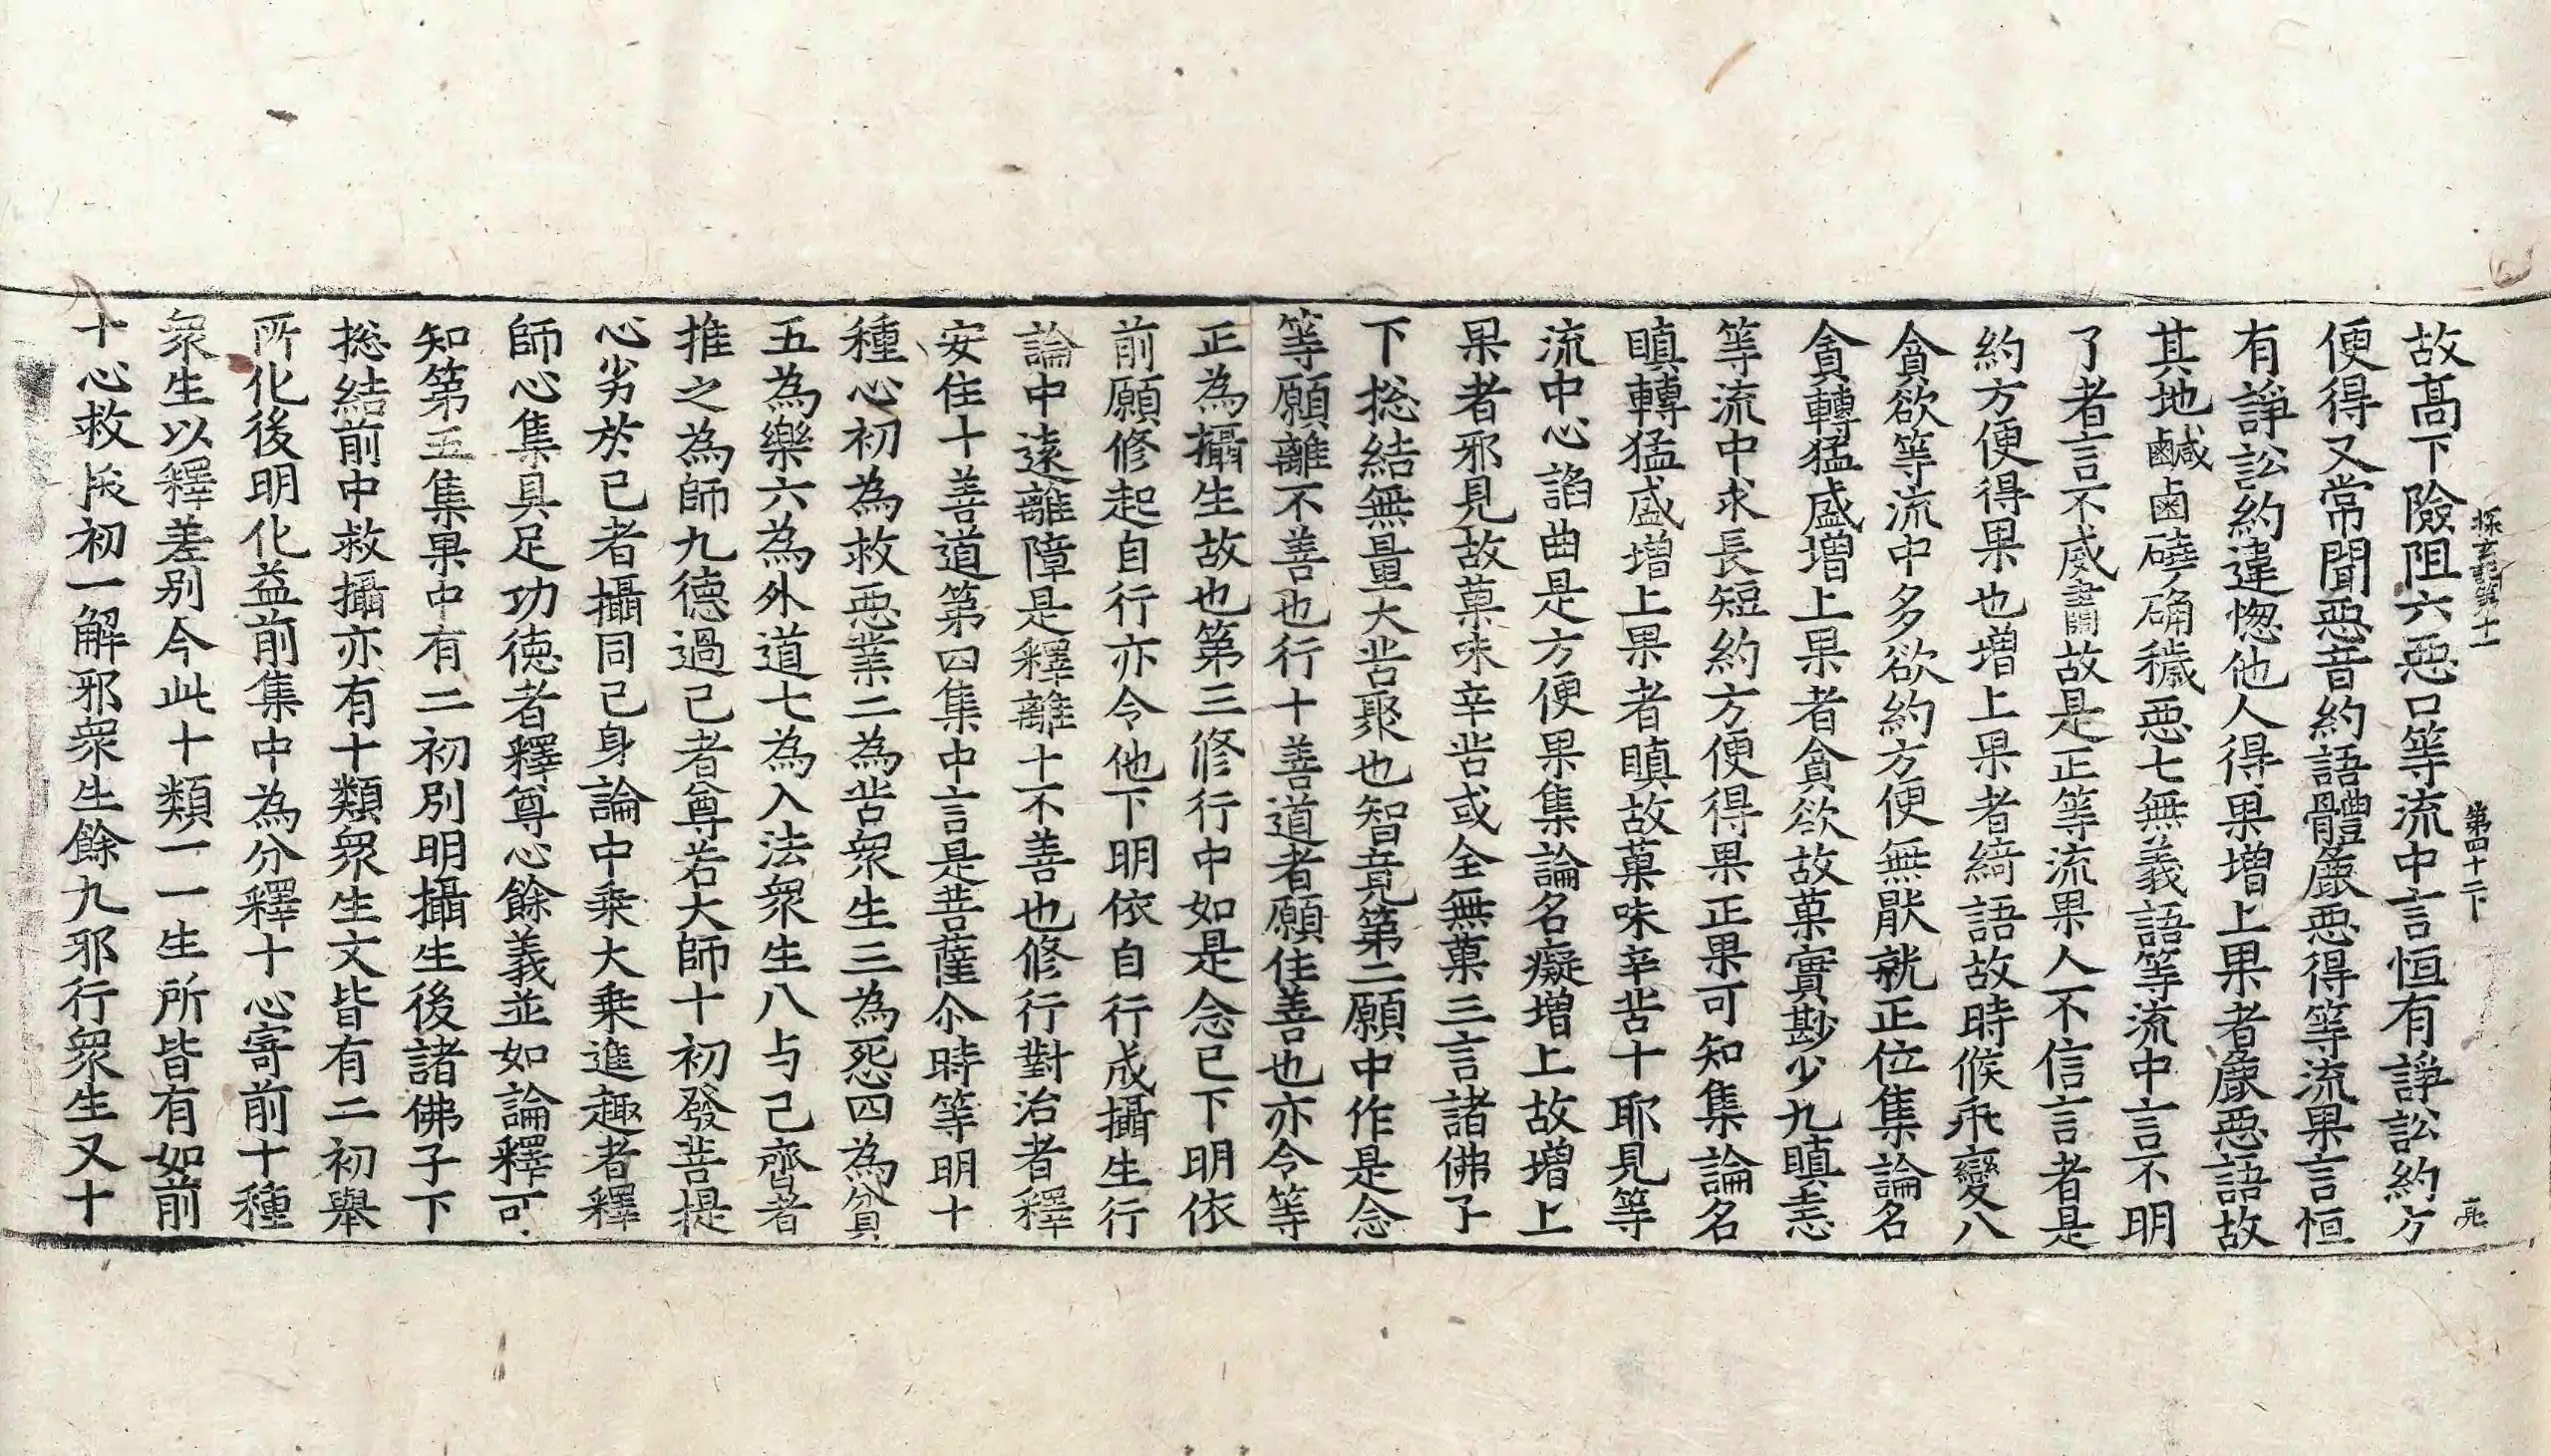 探玄記第十一　第四十二下
故高下險阻六惡口等流中言恒有諍訟約方
便得又常聞惡音約語體麁惡得等流果言恒
有諍訟約違惱他人得果增上果者麁惡語故
其地鹹鹵磽确穢惡七無義語等流中言不明
了者言不威肅故是正等流果人不信言者是
約方便得果也增上果者綺語故時候乖變八
貪欲等流中多欲約方便無猒就正位集論名
貪轉猛盛增上果者貪欲故菓實尠少九瞋恚
等流中求長短約方便得果正果可知集論名
瞋轉猛盛增上果者瞋故菓味辛苦十耶見等
流中心諂曲是方便果集論名癡增上故增上
果者邪見故菓味辛苦或全無菓三言諸佛子
下捴結無量大苦聚也智竟第二願中作是念
等願離不善也行十善道者願住善也亦令等
正為攝生故也第三修行中如是念已下明依
前願修起自行亦令他下明依自行成攝生行
論中遠離障是釋離十不善也修行對治者釋
安住十善道第四集中言是菩薩尒時等明十
種心初為救惡業二為苦衆生三為怨四為貧
五為樂六為外道七為入法衆生八与己齊者
推之為師九德過己者尊若大師十初發菩提
心劣於己者攝同己身論中乗大乗進趣者釋
師心集具足功德者釋尊心餘義並如論釋可
知第五集果中有二初別明攝生後諸佛子下
捴結前中救攝亦有十類衆生文皆有二初舉
所化後明化益前集中為分釋十心寄前十種
衆生以釋差別今此十類一一生所皆有如前
十心救成初一解邪衆生餘九邪行衆生又十